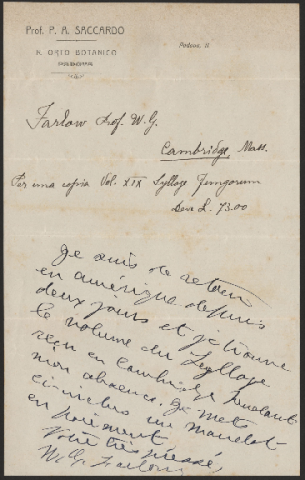 Prof. P. A. SACCARDO
R. ORTO BOTANICO
PADOVA
Padova, il
Farlow Prof. W. G.
Cambridge, Mass.
Per una copia Vol. XIX Sylloge Fungorum
Deve L. 73.00
Je suis de retour
en amérique depuis
deux jours et je trouve
le volume du Sylloge
reçu en Cambridge pendant
mon absence. Je mets
ci-inclus un mandat
en paiement
Votre très pressé,
W. G. Farlow